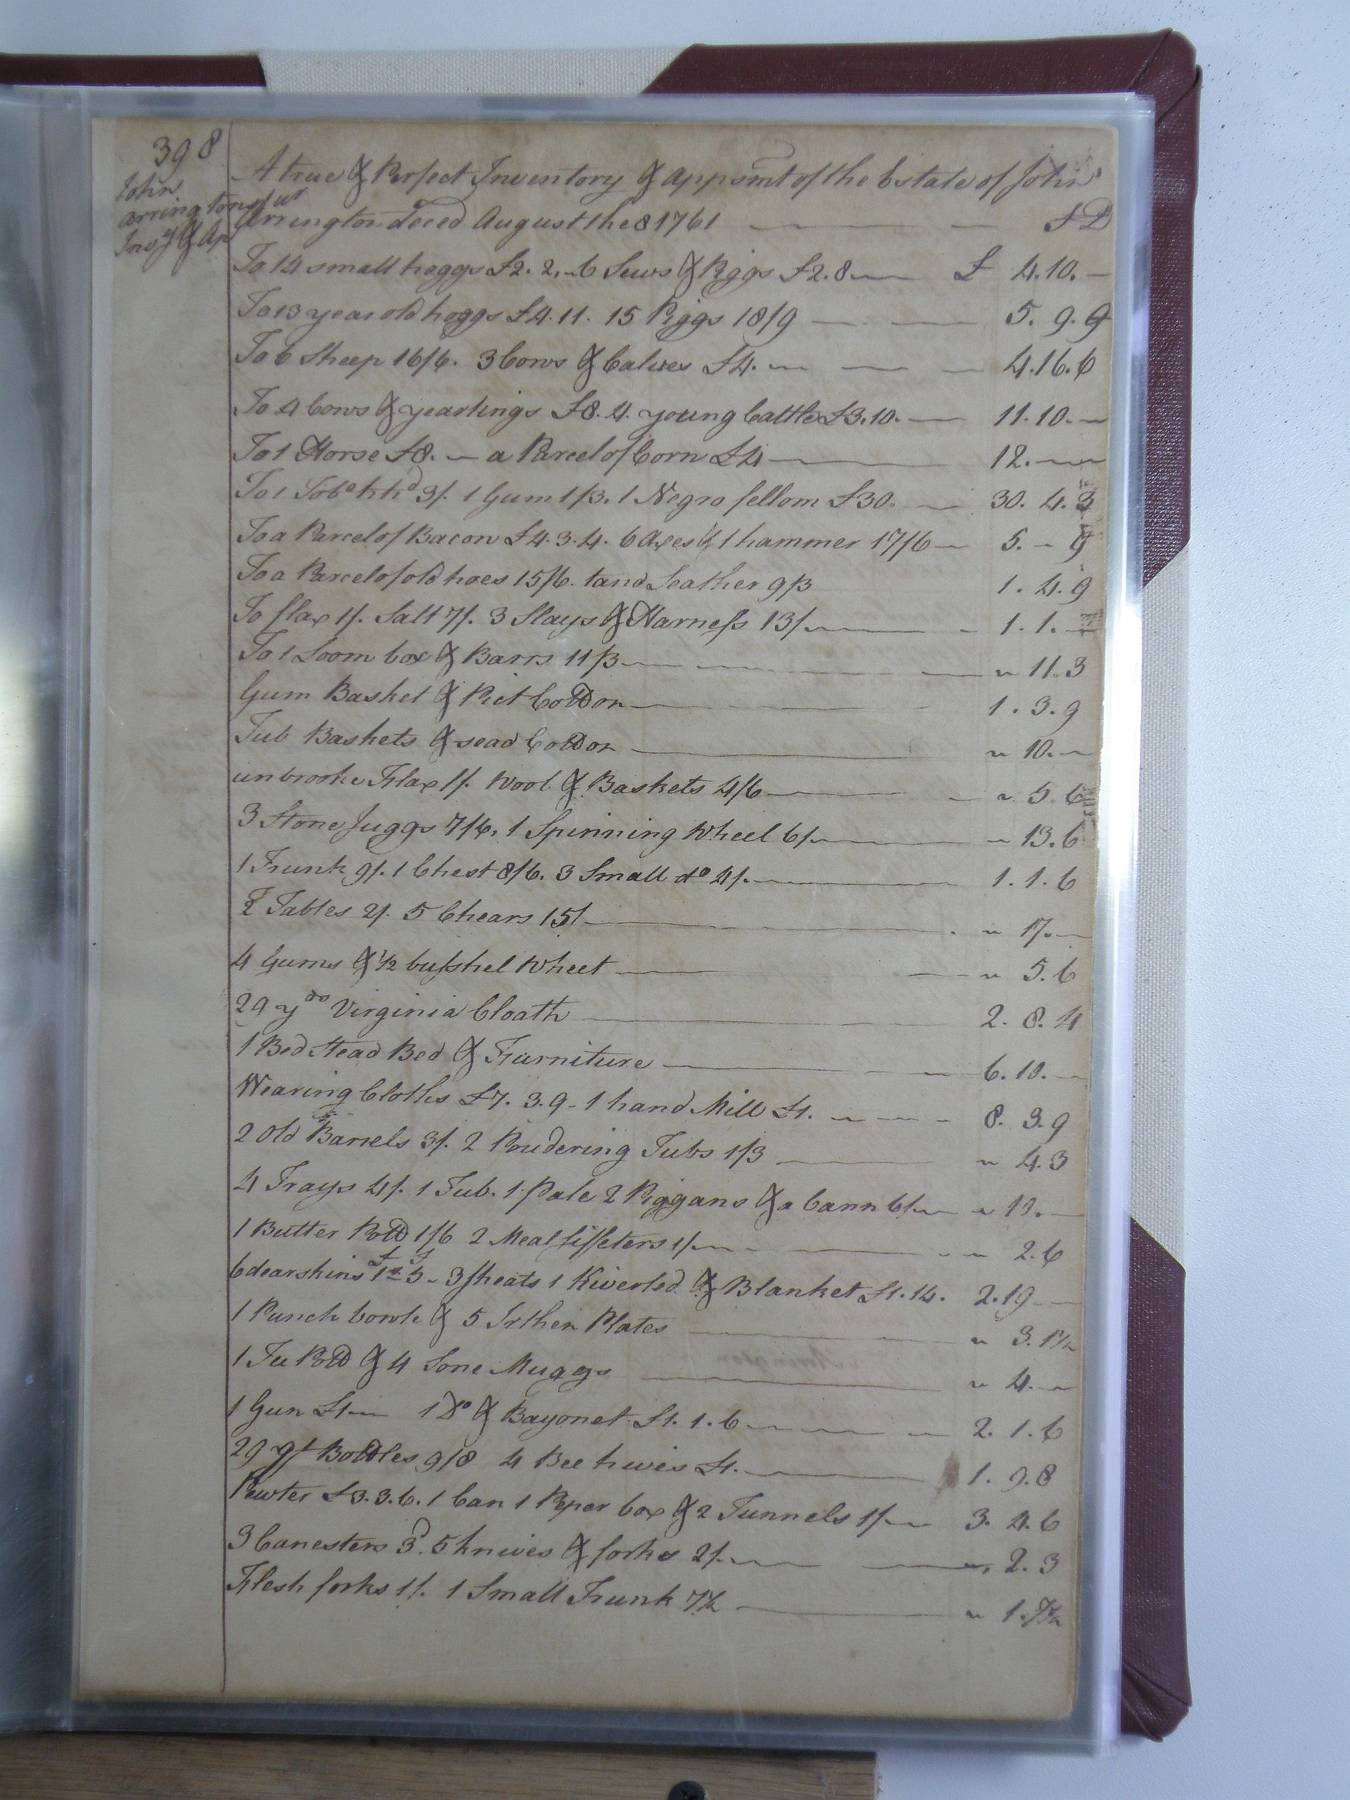 398
John
Arringtons
Invy & Ap
A true & Perfect Inventory & Appsmt of the Estate of John
Arrington Deced August the 8 1761 £ D
To 14 small hoggs £2.2. 6 Sows & Piggs £2.8 £ 4.10.
To 13 year old hoggs £4.11. 15 Piggs 18/9 5.9.9
To 6 Sheep 16/6. 3 Cows & Calves £4. 4.16.6
To 4 Cows & yearlings £8. 4 young Cattle £3.10. 11.10.
To 1 Horse £8. a Parcel of Corn £4 12.
To 1 Tobo hhd 3/. 1 Gum 1/3. 1 Negro fellom £30. 30.4.3
To a Parcel of Bacon £4.3.4. 6 Axes & 1 hammer 17/6 5. - 9
To a Parcel of old hoes 15/6. tand Leather 9/3 1.4.9
To flax 1/. Salt 7/. 3 Slays & Harness 13/. 1.1.
To 1 Loom box & Barrs 11/3 " 11.3
Gum Basket & Pict Cotton 1.3.9
Tub Baskets & sead Cotton " 10.
unbrooke Flax 1/. Wool & Baskets 4/6 " 5.6
3 Stone Juggs 7/6. 1 Spinning Wheel 6/. " 13.6
1 Trunk 9/. 1 Chest 8/6. 3 Small do 4/. 1.1.6
2 Tables 2/. 5 Chears 15/ " 17.
4 Gums & 1/2 bushel Wheet " 5.6
29 yds Virginia Cloath 2.8.4
1 Bed Stead Bed & Furniture 6.10.
Wearing Cloths £7.3.9 - 1 hand Mill £1. 8.3.9
2 Old Barrels 3/. 2 Poudering Tubs 1/3 " 4.3
4 Trays 4/. 1 Tub. 1 Pale 2 Piggans & a Cann 6/. " 10.
1 Butter Pott 1/6 2 Meal sifeters 1/. " 2.6
6 dearskins £1.5 - 3 sheats 1 Kiverled & Blanket £1.14. 2.19
1 Punch bowle & 5 Irthen Plates " 3.1½
1 Tee Pott & 4 Sone Muggs " 4.
1 Gun £1. 1 Do & Bayonet £1.1.6 2.1.6
29 qt Bottles 9/8 4 Bee hives £1. 1.9.8
Pewter £3.3.6. 1 Can 1 Peper box & 2 Tunnels 1/. 3.4.6
3 Canesters 3d. 5 knives & forks 2/. " 2.3
Flesh forks 1/. 1 Small Trunk 7½ " 1.7½